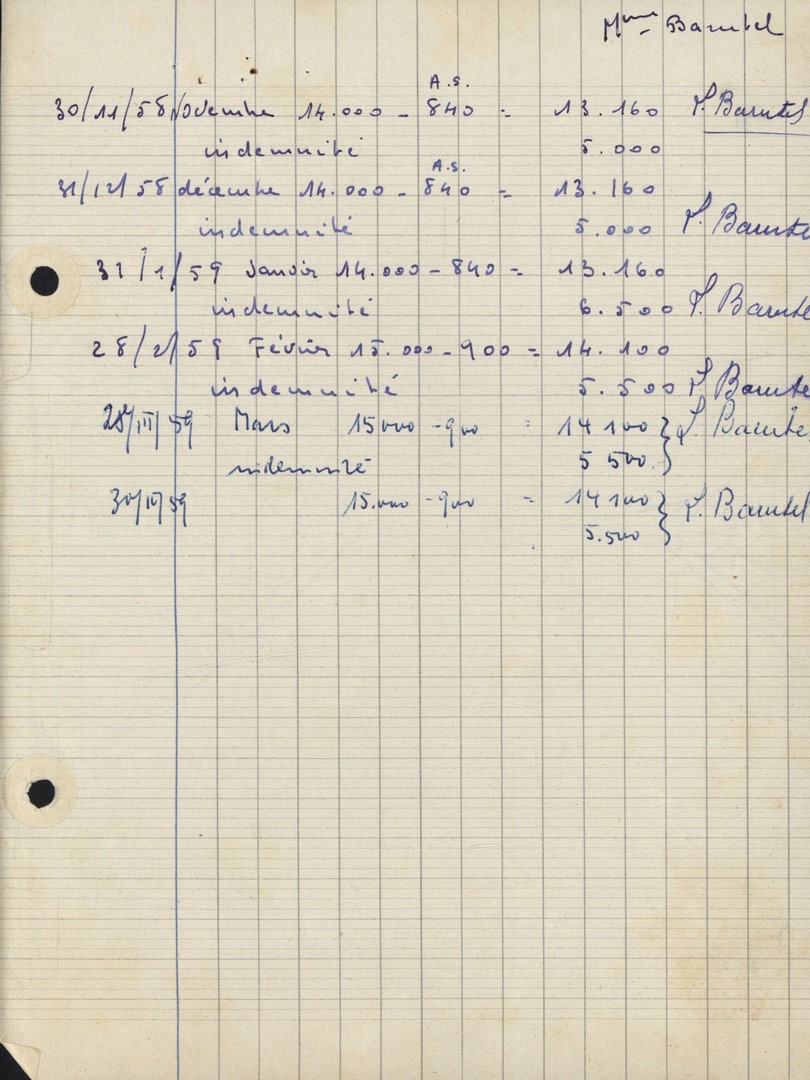 Mme Barutel
A.S.
30/11/58 Novembre 14.000 - 840 = 13.160 J. Barutel
indemnité 5.000
A.S.
31/12/58 décembre 14.000 - 840 = 13.160
indemnité 5.000 J. Barute
31/1/59 Janvier 14.000 - 840 = 13.160
indemnité 6.500 J. Barute
28/2/59 Février 15.000 - 900 = 14.100
indemnité 5.500 J. Barute
/III/59 Mars 15000 - 900 = 14 100 J. Barute
indemnité 5 500.
30/IV/59 15.000 - 900 = 14 100 J. Barutel
5.500